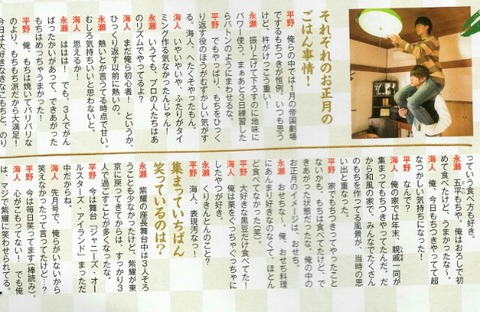 それぞれのお正月の
ごはん事情！
平野 俺らの中では1月の帝国劇場
でするもちつきが恒例。いつも思う
けど、杵がけっこう重い！
永瀬 振り上げて下ろすのに地味に
パワー使う。まぁあと3日練習した
らバトンのようにまわせるな。
平野 でもやっぱり、もちをひっく
り返す役のほうがむずかしい気がす
る。海人、へたくそやったもん。
海人 いやいやいや、ふたりがタイ
ミング作る気なかったんじゃん！
永瀬 いうても、プロの人たちはあ
のリズムでやってるよ？
海人 まだ俺ら初心者！ というか、
ひっくり返す以前に熱いの。
永瀬 熱いとか言ってる時点で甘い。
むしろ気持ちいいと思わないと。
海人 思えるか！
永瀬 ははは！ でも、3人でがん
ばったかいがあって、できあがった
もちはめっちゃうまかった！
平野 俺、もちは焼いてパリパリな
のより、生もち派だから大満足！
今日は大好きなきなこもちと、のり
っていう食べ方も好き。
永瀬 五平もちや、俺はおろしで初
めて食べたけど、うまかったな〜。
海人 俺、今日もちつきやってて超
なつかしい気持ちになった！
平野 なんで？
海人 俺の家では年末、親戚一同が
集まってもちつきやってたんだ。だ
から和風の家で、みんなでたくさん
のもちを作ってる風景が、当時の思
い出と重なった。
平野 家でもちつきってやったこと
ないかも。もちは食べてたけど、で
きあがった状態だったな。俺の中の
お正月の料理っていえば、おせち。
永瀬 おせちな〜。俺、おせち料理
にあんまり好きなのなくて、ほとん
ど食べてなかった(笑)。
平野 大好きな黒豆だけ食べてた！
海人 俺は栗をくっちゃくっちゃに
したやつが好き。
永瀬 くりきんとんのこと？
平野 海人、表現汚なっ！
集まっていちばん
笑っているのは？
永瀬 紫耀の座長舞台中は3人そろ
うことも少なかったけど、紫耀が東
京に戻ってきてからは、すっかり3
人で過ごすことが多くなったな。
平野 今は舞台『ジャニーズ・オー
ルスターズ・アイランド』まっただ
中だからね。
海人 先月まで、俺らがいないから
寂しかったって言ってたけど…？
平野 今は毎日笑ってます(棒読み)。
海人 心がこもってない！ でも俺
は、マジで紫耀に笑わせられてる。